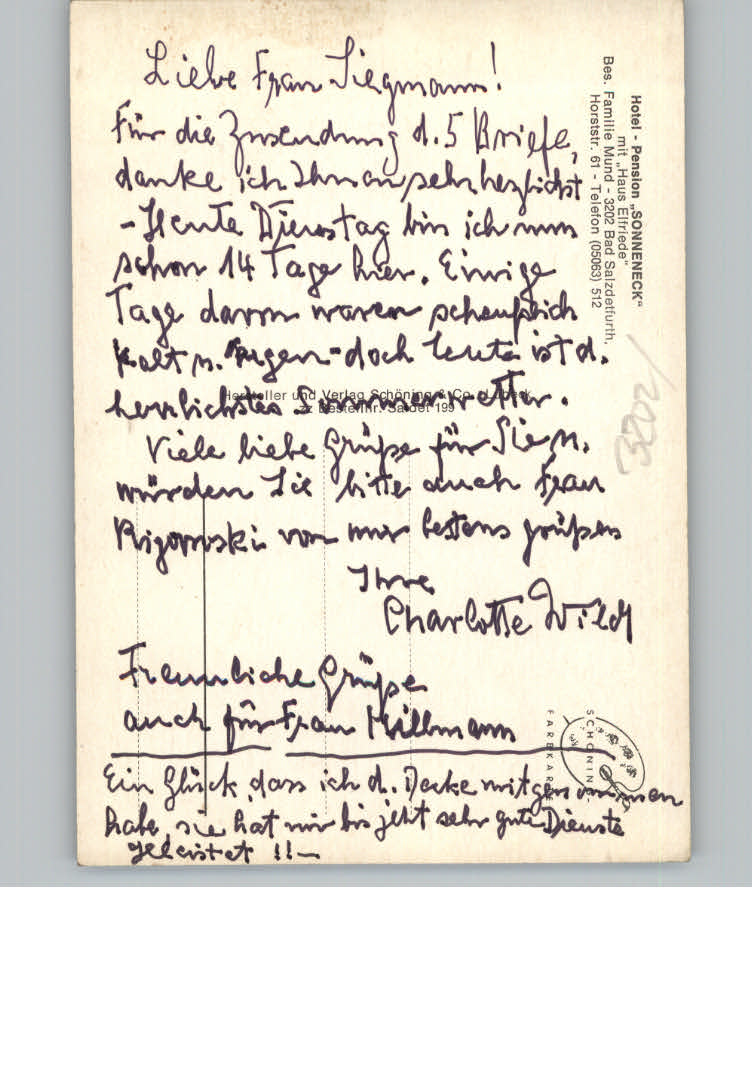 Liebe Frau Siegmann!
Für die Zusendung d. 5 Briefe,
danke ich Ihnen sehr herzlichst
- Heute Dienstag bin ich nun
schon 14 Tage hier. Einige
Tage davon waren scheußlich
kalt u. Regen - doch heute ist d.
herrlichstes Sommerwetter.
Viele liebe Grüße für Sie u.
würden Sie bitte auch Frau
von mir bestens grüßen
Ihre
Charlotte Wildt
Freundliche Grüße
auch für Frau Hillmann
Ein Glück, dass ich d. Decke mitgenommen
habe, sie hat mir bis jetzt sehr gute Dienste
geleistet !! -
Hotel - Pension „SONNENECK"
mit „Haus Elfriede"
Bes. Familie Mund - 3202 Bad Salzdetfurth,
Horststr. 61 - Telefon (05063) 512
Hersteller und Verlag Schöning & Co., Lübeck
Bestellnr. Saldet 199
SCHÖNING
FARBKARTE